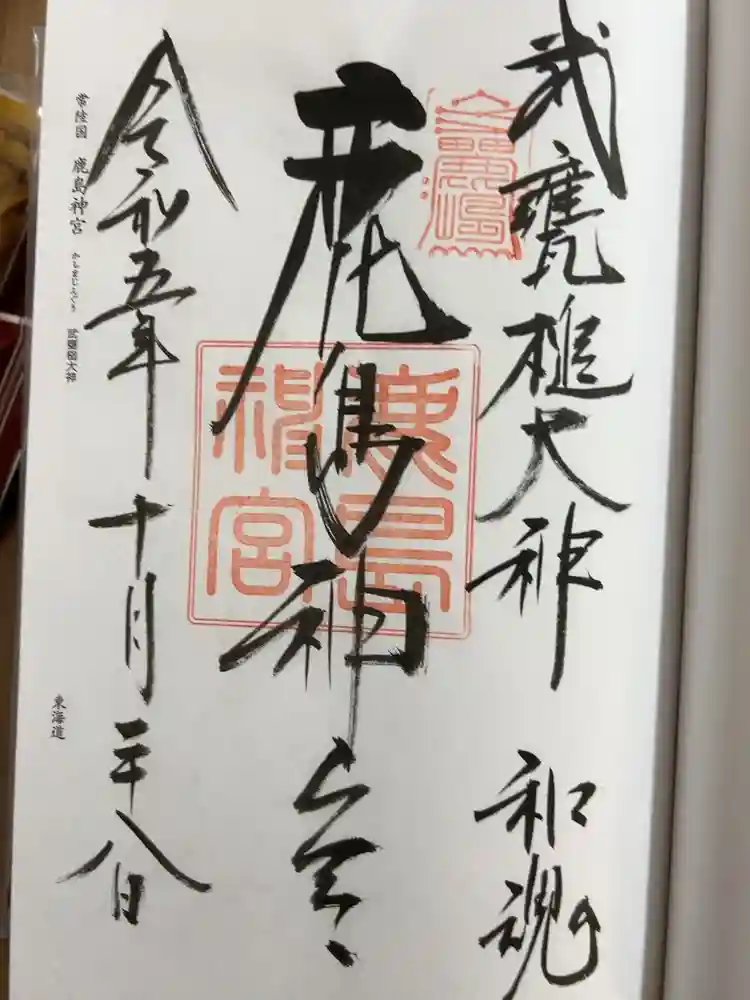 武甕槌大神 和魂
鹿島神宮
鹿島
神宮
令和五年十月二十八日
常陸国 鹿島神宮 かしまじんぐう 武甕槌大神
東海道